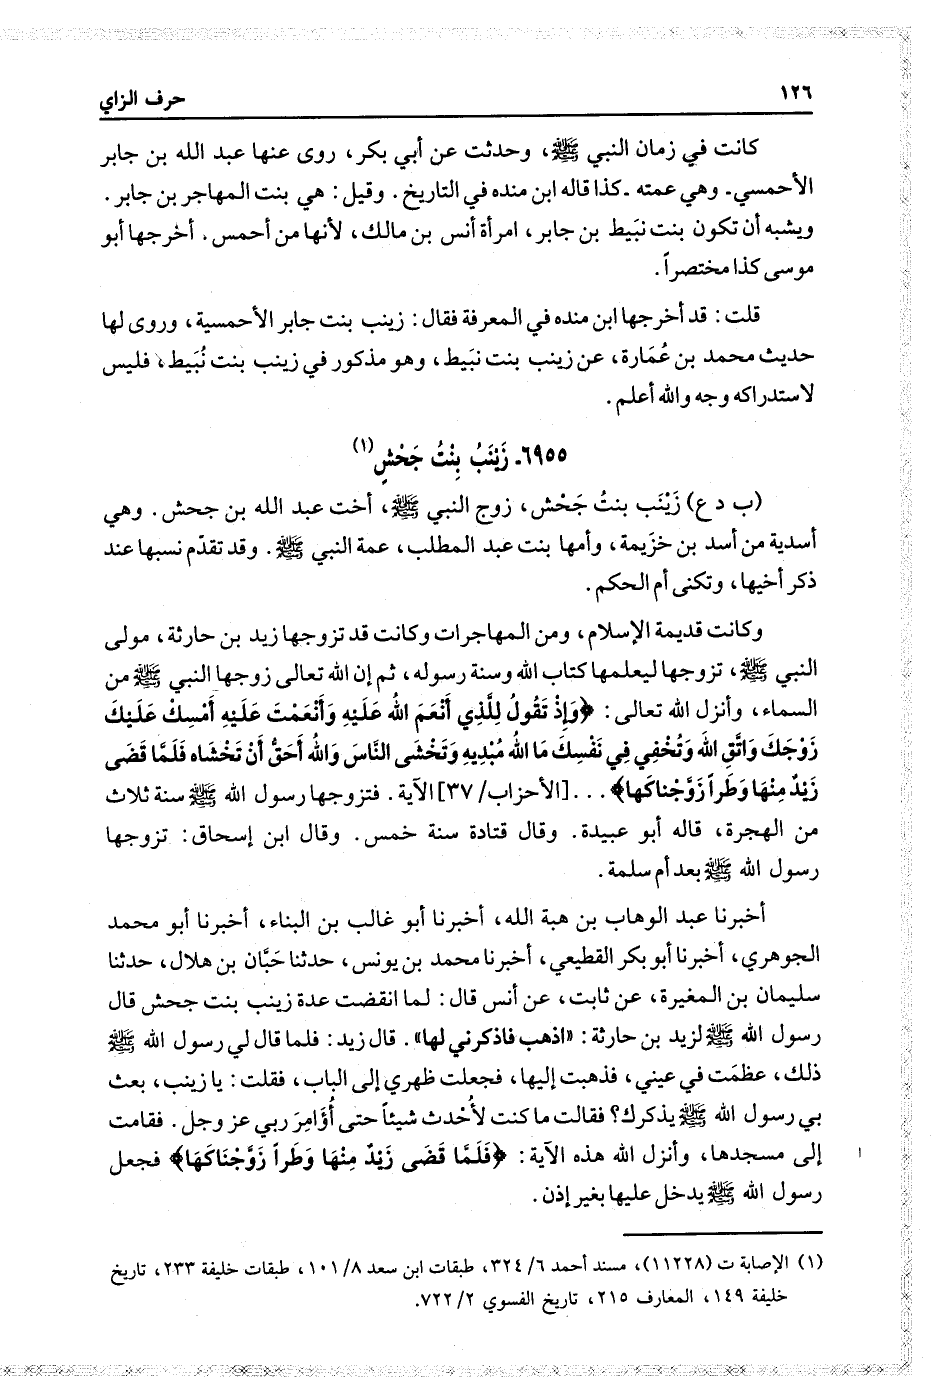 ١٢٦ حرف الزاي
كانت في زمان النبي ﷺ، وحدثت عن أبي بكر، روى عنها عبد الله بن جابر
الأحمسي ـ وهي عمته ـ كذا قاله ابن منده في التاريخ. وقيل: هي بنت المهاجر بن جابر.
ويشبه أن تكون بنت نبَيط بن جابر، امرأة أنس بن مالك، لأنها من أحمس. أخرجها أبو
موسى كذا مختصراً.
قلت: قد أخرجها ابن منده في المعرفة فقال: زينب بنت جابر الأحمسية، وروى لها
حديث محمد بن عُمَارة، عن زينب بنت نبَيط، وهو مذكور في زينب بنت نُبَيط، فليس
لاستدراكه وجه والله أعلم.
٦٩٥٥ـ زَيْنَبُ بِنْتُ جَحْشٍ(١)
(ب د ع) زَيْنَب بنتُ جَحْش، زوج النبي ﷺ، أخت عبد الله بن جحش. وهي
أسدية من أسد بن خزَيمة، وأمها بنت عبد المطلب، عمة النبي ﷺ. وقد تقدّم نسبها عند
ذكر أخيها، وتكنى أم الحكم.
وكانت قديمة الإسلام، ومن المهاجرات وكانت قد تزوجها زيد بن حارثة، مولى
النبي ﷺ، تزوجها ليعلمها كتاب الله وسنة رسوله، ثم إن الله تعالى زوجها النبي ﷺ من
السماء، وأنزل الله تعالى: ﴿وَإِذْ تَقُولُ لِلَّذِي أَنْعَمَ اللهُ عَلَيْهِ وَأَنْعَمْتَ عَلَيْهِ أَمْسِكْ عَلَيْكَ
زَوْجَكَ وَاتَّقِ اللهَ وَتُخْفِي فِي نَفْسِكَ مَا اللهُ مُبْدِيهِ وَتَخْشَى النَّاسَ وَاللهُ أَحَقُّ أَنْ تَخْشَاه فَلَمَّا قَضَى
زَيْدٌ مِنْهَا وَطَراً زَوَّجْنَاكَهَا﴾. . . [الأحزاب/ ٣٧] الآية. فتزوجها رسول الله ﷺ سنة ثلاث
من الهجرة، قاله أبو عبيدة. وقال قتادة سنة خمس. وقال ابن إسحاق: تزوجها
رسول الله ﷺ بعد أم سلمة.
أخبرنا عبد الوهاب بن هبة الله، أخبرنا أبو غالب بن البناء، أخبرنا أبو محمد
الجوهري، أخبرنا أبو بكر القطيعي، أخبرنا محمد بن يونس، حدثنا حَبَّان بن هلال، حدثنا
سليمان بن المغيرة، عن ثابت، عن أنس قال: لما انقضت عدة زينب بنت جحش قال
رسول الله ﷺ لزيد بن حارثة: «اذهب فاذكرني لها». قال زيد: فلما قال لي رسول الله ﷺ
ذلك، عظمَت في عيني، فذهبت إليها، فجعلت ظهري إلى الباب، فقلت: يا زينب، بعث
بي رسول الله ﷺ يذكرك؟ فقالت ما كنت لأُحْدث شيئاً حتى أُؤَامِرَ ربي عز وجل. فقامت
إلى مسجدها، وأنزل الله هذه الآية: ﴿فَلَمَّا قَضَى زَيْدٌ مِنْهَا وَطَراً زَوَّجْنَاكَهَا﴾ فجعل
رسول الله ﷺ يدخل عليها بغير إذن.
(١) الإصابة ت (١١٢٢٨)، مسند أحمد ٦/ ٣٢٤، طبقات ابن سعد ٨/ ١٠١، طبقات خليفة ٢٣٣، تاريخ
خليفة ١٤٩، المعارف ٢١٥، تاريخ الفسوي ٢/ ٧٢٢.